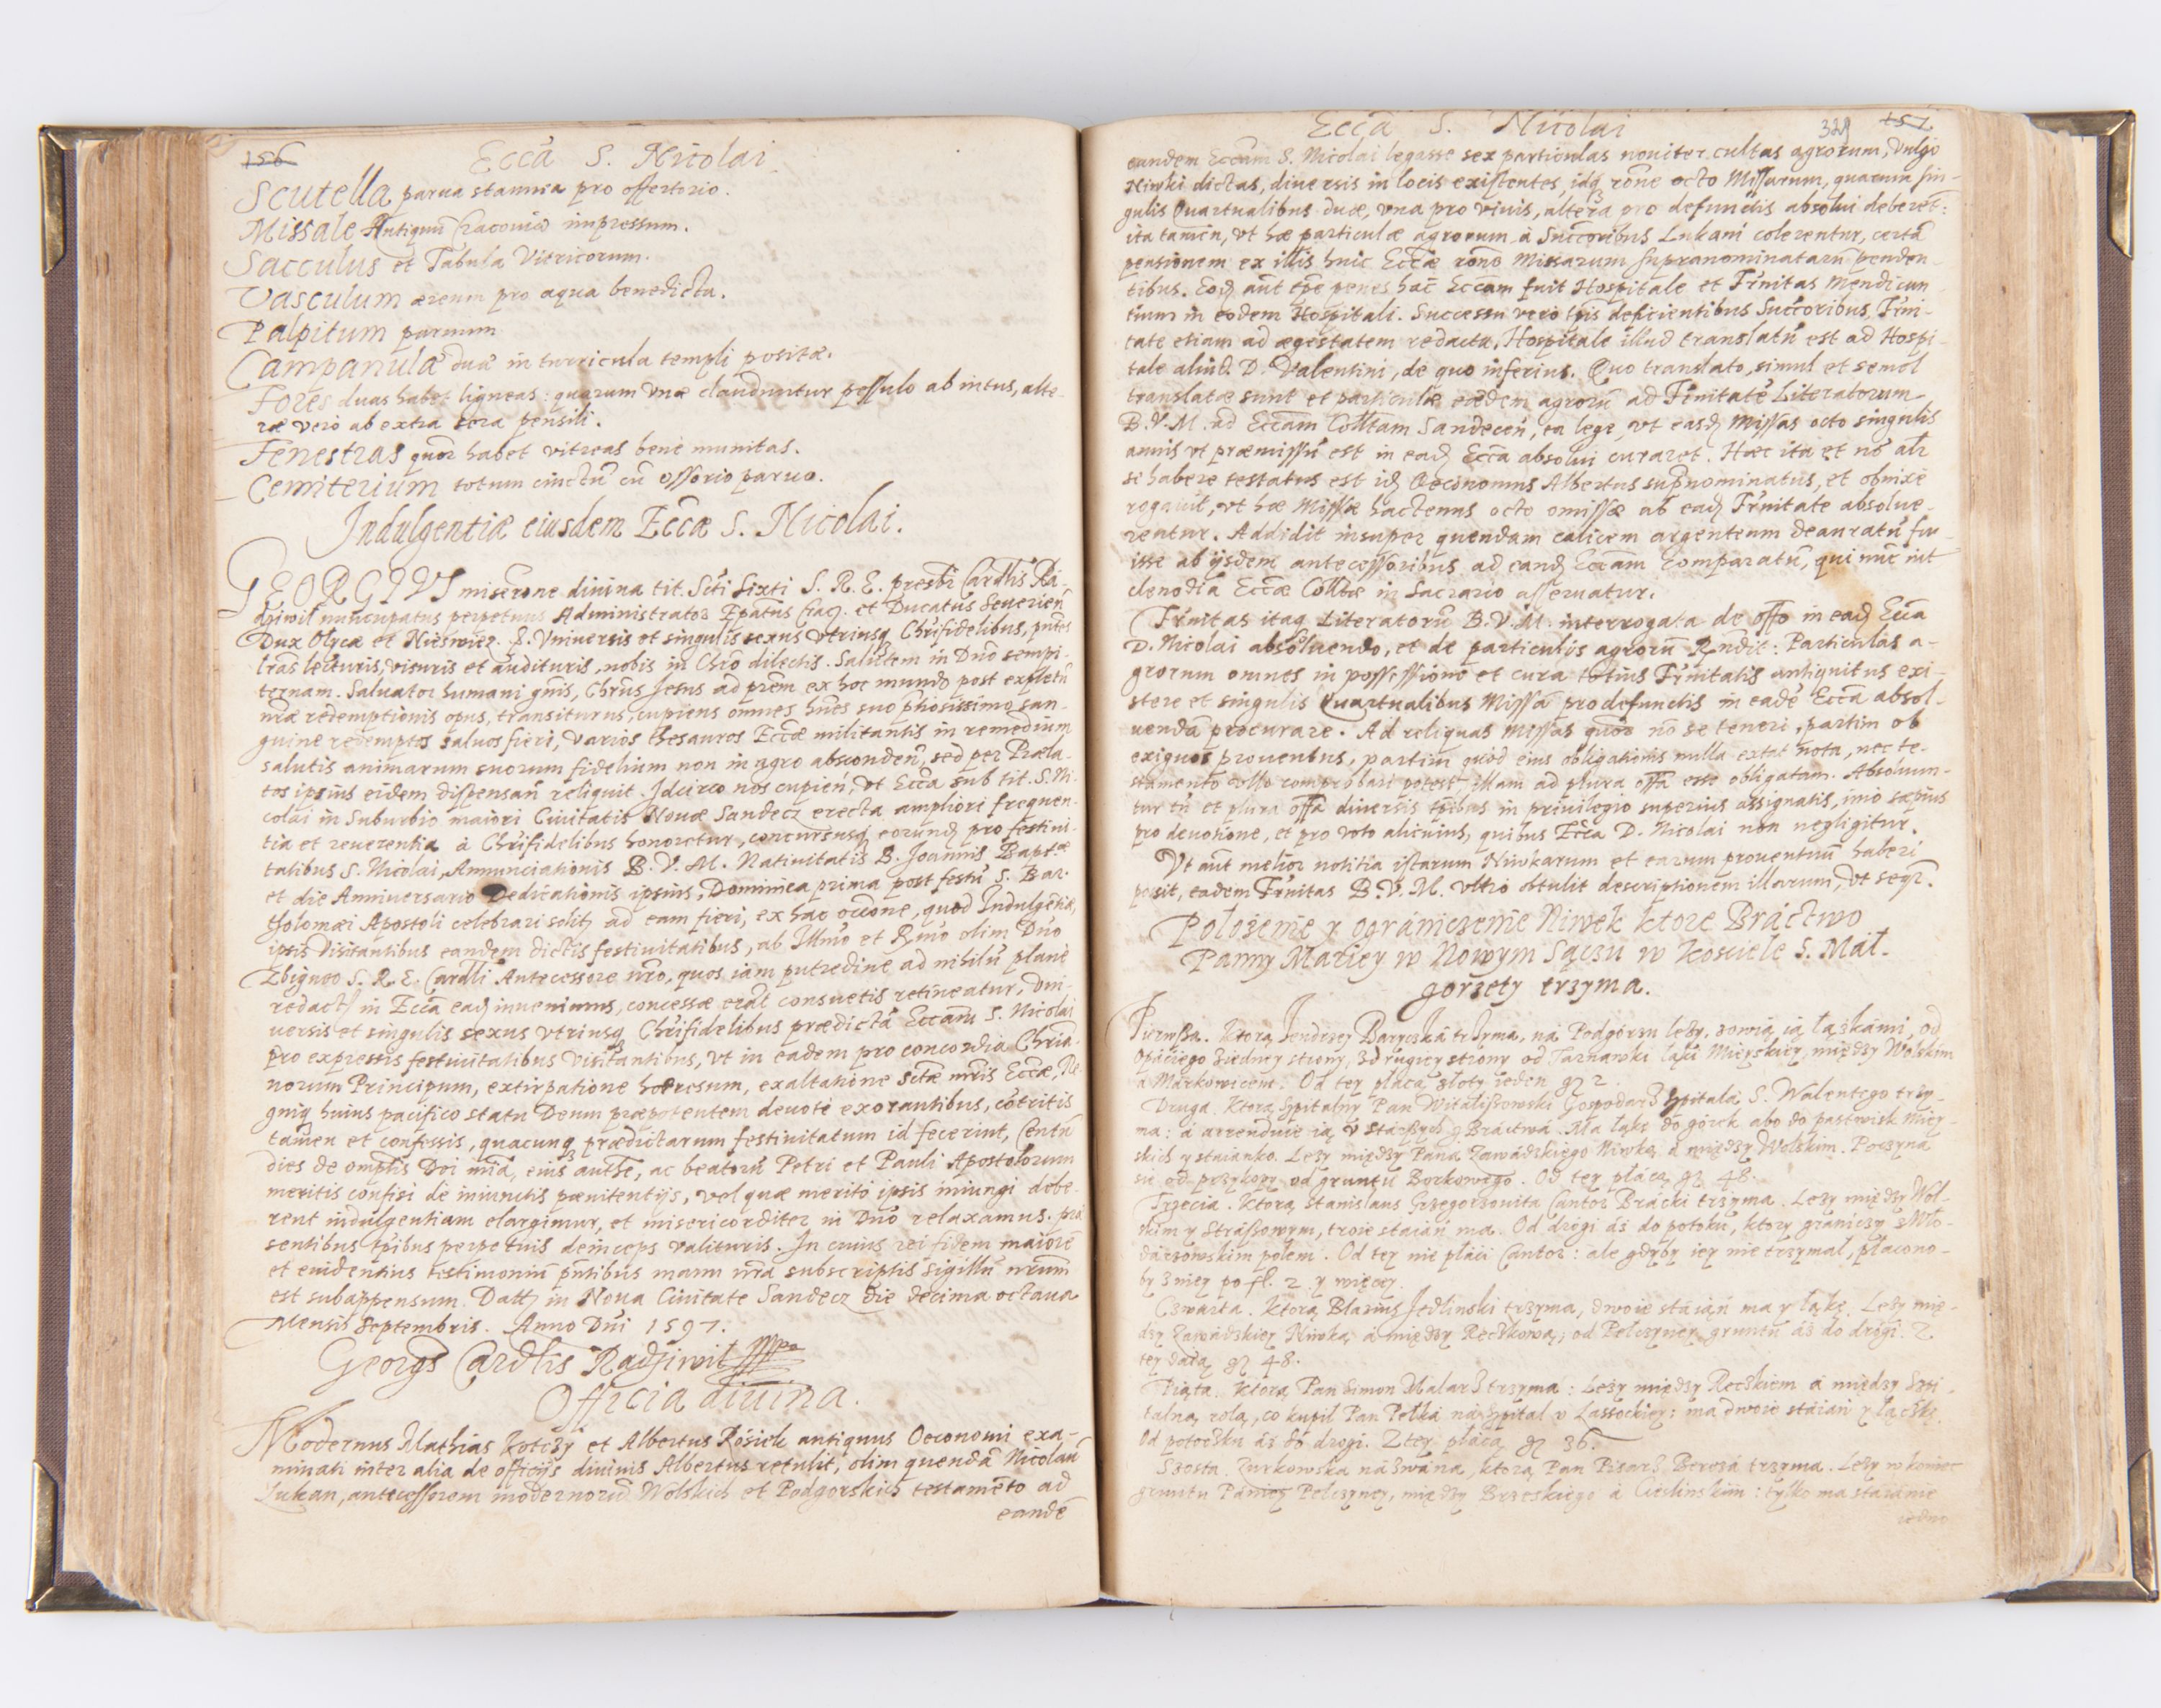 156
Eccã S. Nicolai
Scutella parua stannea pro offertorio.
Missale Antiquũ Cracouiæ impressum.
Sacculus et Tabula Vitricorum.
Vasculum æreum pro aqua benedicta.
Palpitum paruum
Campanulæ duæ in turricula templi positæ.
Fores duas habet ligneas: quarum vnæ clauduntur pessulo ab intus, alte-
ræ verò ab extra sera pensili.
Fenestras quoꝫ habet vitreas bene munitas.
Cemiterium totum cinctũ cũ ossorio paruo.
Indulgentiæ eiusdem Eccæ S. Nicolai.
GEORGIVS miserõne diuina tit. Scti Sixti S. R. E. presbr Cardlis Ra-
dziwil nuncupatus perpetuus Administrator Epatus Crac. et Ducatus Seuerien̄
Dux Olycæ et Nieswiez. &. Vniuersis et singulis sexus vtriusq Chrifidelibus, pntes
lras lecturis, visuris et audituris, nobis in Chro dilectis. Salutem in Dno sempi-
ternam. Saluator humani gnis, Chrus Jesus ad prem ex hoc mundo post expletũ
nræ redemptionis opus, transiturus, cupiens omnes hnes suo phosissimo san-
guine redemptos saluos fieri, varios thesauros Eccæ militantis in remedium
salutis animarum suorum fidelium non in agro absconden̄, sed per Præla-
tos ipsius eidem dispensan̄ reliquit. Idcirco nos cupien̄, vt Ecca sub tit. S. Ni-
colai in Suburbio maiori Ciuitatis Nouæ Sandecz erecta ampliori frequen-
tia et reuerentia à Chrifidelibus honoretur, concursusq eorund pro festiui-
tatibus S. Nicolai, Annunciationis B. V. M. Natiuitatis B. Joannis Baptæ
et die Anniuersario Dedicationis ipsius, Dominica prima post festũ S. Bar-
tholomæi Apostoli celebrari solitꝫ ad eam fieri, ex hac occone, quod Indulgētiæ
ipsis Visitantibus eandem dictis festiuitatibus, ab Illmo et Rmo olim Dno
Zbigneo S. R. E. Cardli Antecessore nro, quos iam putredine ad nihilũ planè
redactꝫ in Ecca ead inuenimus, concessæ erāt consuetis retineatur, vni-
uersis et singulis sexus vtriusq Chrifidelibus prædictã Eccam S. Nicolai
pro expressis festiuitatibus visitantibus, vt in eadem pro concordia Chria-
norum Principum, extirpatione hæresum, exaltatione sctæ mris Eccæ, Re-
gniq huius pacifico statu Deum præpotentem deuotè exorantibus, cōtritis
tamen et confessis, quacunq prædictarum festiuitatum id fecerint, Centũ
dies de omptis Dei mia, eius autthe, ac beatorũ Petri et Pauli Apostolorum
meritis confisi de iniunctis pænitentijs, vel quæ meritò ipsis iniungi debe-
rent indulgentiam elargimur, et misericorditer in Dno relaxamus. præ-
sentibus tpibus perpetuis deinceps valituris. In cuius rei fidem maiorē
et euidentius testimoniũ pntibus manu nra subscriptis Sigillũ nrum
est subappensum. Dattꝫ in Noua Ciuitate Sandecz die decima octaua
Mensis Septembris. Anno Dni 1597.
Georgs Cardlis Radziwil
Officia diuina.
Modernus Mathias Kotczy et Albertus Kosiek antiquus Oeconomi exa-
minati inter alia de officijs diuinis Albertus retulit, olim quendã Nicolaũ
Lukan, antecessorem modernorũ Wolskich et Podgorskich testamēto ad
eandē
Eccã S. Nicolai
329 157
eandem Eccam S. Nicolai legasse sex particulas nouiter cultas agrorum, vulgo
Niwki dictas, diuersis in locis existentes, idq rone octo Missarum, quarum sin-
gulis Quartualibus duæ, vna pro viuis, altera pro defunctis absolui deberēt:
ita tamen, vt hæ particulæ agrorum à Succoribus Lukani colerentur, certã
pensionem ex illis huic Eccæ rone Missarum supranominatarũ penden-
tibus. Eod aūt tpe penes hãc Eccam fuit Hospitale et Frnitas Mendican
tium in eodem Hospitali. Successu verò tpis deficientibus Succoribus, Frni-
tate etiam ad ægestatem redacta, Hospitale illud translatũ est ad Hospi-
tale aliud D. Valentini, de quo inferius. Quo translato, simul et semel
translatæ sunt et particulæ eædem agrorũ ad Frnitatē Literatorum
B. V. M. ad Eccam Colltam Sandecen̄, ea lege, vt easd Missas octo singulis
annis vt præmissũ est in ead Ecca absolui curaret. Hæc ita et nō alr
se habere testatus est id Oeconomus Albertus supnominatus, et obnixè
rogauit, vt hæ Missæ hactenus octo omissæ ab ead Frnitate absolue-
rentur. Addidit insuper quendam calicem argenteum deauratũ fu-
isse ab ijsdem antecessoribus ad eand Eccam comparatũ, qui nūc int
clenodia Eccæ Colltæ in Sacrario asseruatur.
Frnitas itaq Literatorũ B. V. M. interrogata de offo in ead Ecca
D. Nicolai absoluendo, et de particulis agrorũ Rndit: Particulas a-
grorum omnes in possessione et cura totius Frnitatis antiquitus exi-
stere et singulis Quartualibus Missã pro defunctis in eadē Ecca absol-
uendã procurare. Ad reliquas missas quoꝫ nō se teneri, partim ob
exiguos prouentus, partim quòd eius obligationis nulla extat nota, nec te-
stamento vllo comprobari potest, illam ad plura offa esse obligatam. Absoluun-
tur tn et plura offa diuersis tpibus in priuilegio superius assignatis, imò sæpius
pro deuotione, et pro voto alicuius, quibus Ecca D. Nicolai non negligitur.
Vt aūt melior notitia istarum Niwkarum et earum prouentuũ haberi
possit, eadem Frnitas B. V. M. vltrò obtulit descriptionem illarum, vt seqr.
Położenie y ográniczenie Niwek ktore Bráctwo
Panny Mariey w Nowym Sączu w kościele S. Mał-
gorzety trzyma.
Pierwßa. Ktorą Jendrzey Baryczká trzyma, ná Podgórzu leży, zowią ią łążkámi, od
Opiciego ziedney strony, zdrugiey strony od Tarnawki łąki Mieyskiey, między Wolskim
á Markowicem. Od tey płácą złoty ieden gr 2.
Druga. Ktorą Spitalny Pan Witálißowski Gospodarz Szpitala S. Walentego trzy-
ma: á arrenduie ią v stárßych z Bráctwá. Ma łąkę do górek abo do pastwisk Miey
skich y staianko. Leży między Páná Zawádzkiego Niwką á między Wolskim. Poczyna
się od przykopy od gruntu Borkowego. Od tey płácą gr 48.
Trzecia. Ktorą Stanislaus Grzegorzouita Cantor Brácki trzyma. Leży między Wol-
skim y Stráßowym, troie stáián ma. Od drogi áż do potoku, ktory grániczy z Mło-
dáwowskim polem. Od tey nie płáci Cantor: ale gdyby iey nie trzymał, płacono-
by z niey po fl. 2 y więcey.
Czwarta. Ktorą Blasius Jedlinski trzyma, dwoie stáián ma y łąkę. Leży mię-
dzy Zawádzkiey Niwką á między Reczkową; od Pelczyney gruntu áż do drogi. Z
tey dáią gr 48.
Piąta. Ktorą Pan Simon Malarz trzyma: Leży między Reczkiem á między Szpi-
talną rolą, co kupił Pan Pełká ná Szpital v Lassockiey: ma dwoie stáián y łączkę
Od potoczku áż do drogi. Z tey płácą gr 36.
Szosta. Zurkowska názwána, ktorą Pan Pisarz Berezá trzyma. Leży w koniec
gruntu Pániey Pelczyney, między Brzeskiego á Cieslinskim: tylko ma stáianie
iedno